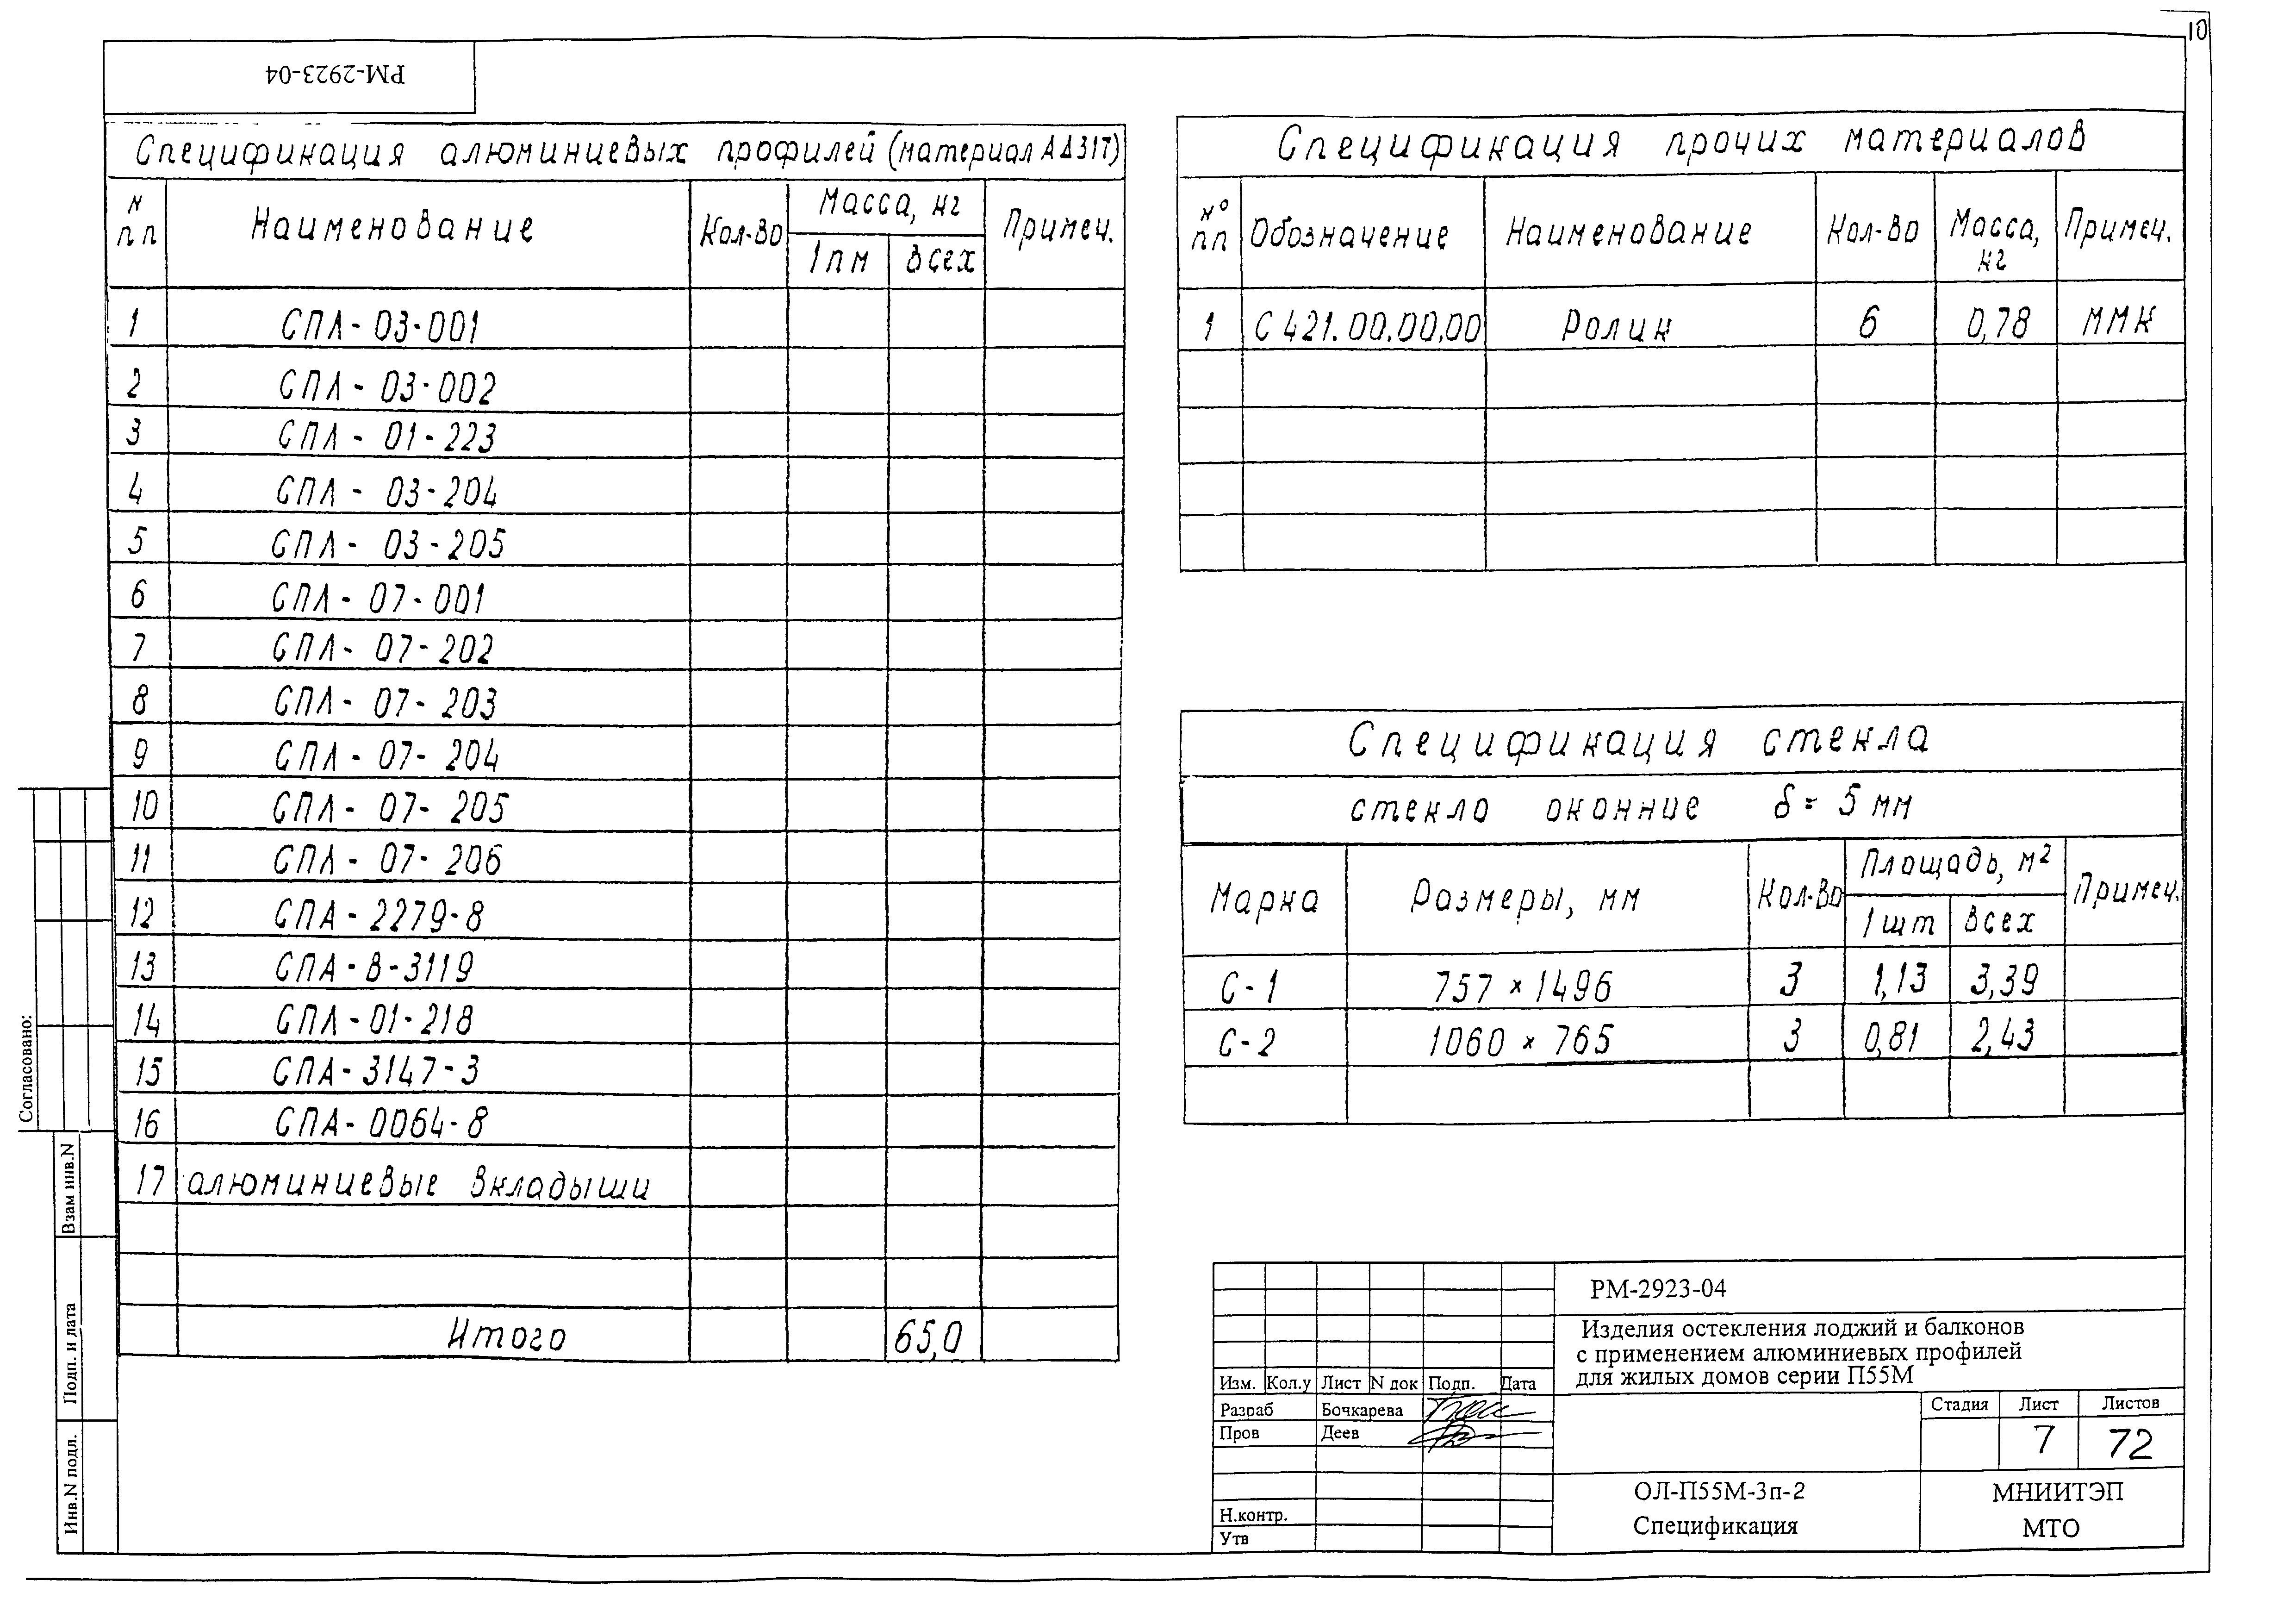 10
РМ-2923-04
Спецификация алюминиевых профилей (материал АД31Т)
N пп Наименование Кол-во Масса, кг Примеч.
1пм всех
1 СПЛ-03-001
2 СПЛ-03-002
3 СПЛ-01-223
4 СПЛ-03-204
5 СПЛ-03-205
6 СПЛ-07-001
7 СПЛ-07-202
8 СПЛ-07-203
9 СПЛ-07-204
10 СПЛ-07-205
11 СПЛ-07-206
12 СПА-2279-8
13 СПА-В-3119
14 СПЛ-01-218
15 СПА-3147-3
16 СПА-0064-8
17 алюминиевые вкладыши
Итого 65,0
Спецификация прочих материалов
N° пп Обозначение Наименование Кол-во Масса, кг Примеч.
1 С421.00.00.00 Ролик 6 0,78 ММК
Спецификация стекла
стекло оконние δ= 5 мм
Марка Размеры, мм Кол-во Площадь, м2 Примеч.
1 шт всех
С-1 757 × 1496 3 1,13 3,39
С-2 1060 × 765 3 0,81 2,43
Согласовано:
Взам инв.N
Подп. и дата
Инв.N подл.
РМ-2923-04
Изделия остекления лоджий и балконов
с применением алюминиевых профилей
для жилых домов серии П55М
Изм. Кол.у Лист N док Подп. Дата
Разраб Бочкарева
Пров Деев
Н.контр.
Утв
Стадия Лист Листов
7 72
ОЛ-П55М-3п-2
Спецификация
МНИИТЭП
МТО